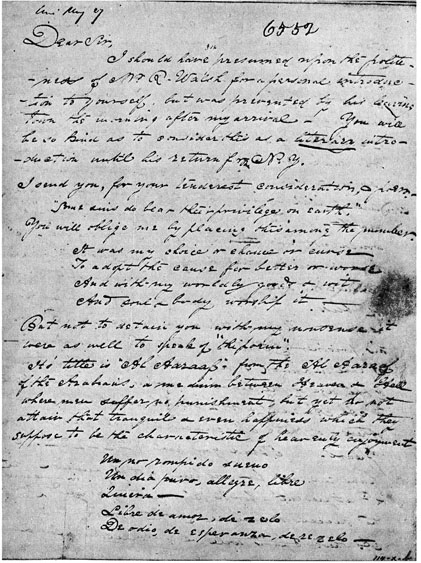 6552
Dear Sir,
I should have presumed upon the polite-
-ness of Mr R. Walsh for a personal introduc-
-tion to yourself, but was prevented by his leaving
town the morning after my arrival — You will
be so kind as to consider this as a literary intro-
-duction until his return from N.Y.
I send you, for your tenderest consideration, a poem—
"Some sins do bear their privilege on earth."
You will oblige me by placing this among the number—
It was my choice or chance or curse
To adopt the cause for better or worse
And with my worldly goods & wit
And soul & body worship it —
But not to detain you with my nonsense it
were as well to speak of "the poem".
Its title is "Al Aaraaf" — from the Al Aaraaf
of the Arabians, a medium between Heaven & Hell
where men suffer no punishment, but yet do not
attain that tranquil & even happiness which they
suppose to be the characteristic of heavenly enjoyment
Un no rompido sueno
Un dia puro, allegre, libre
Quiera —
Libre de amor, de zelo
De odio, de esperanza, de rezelo —